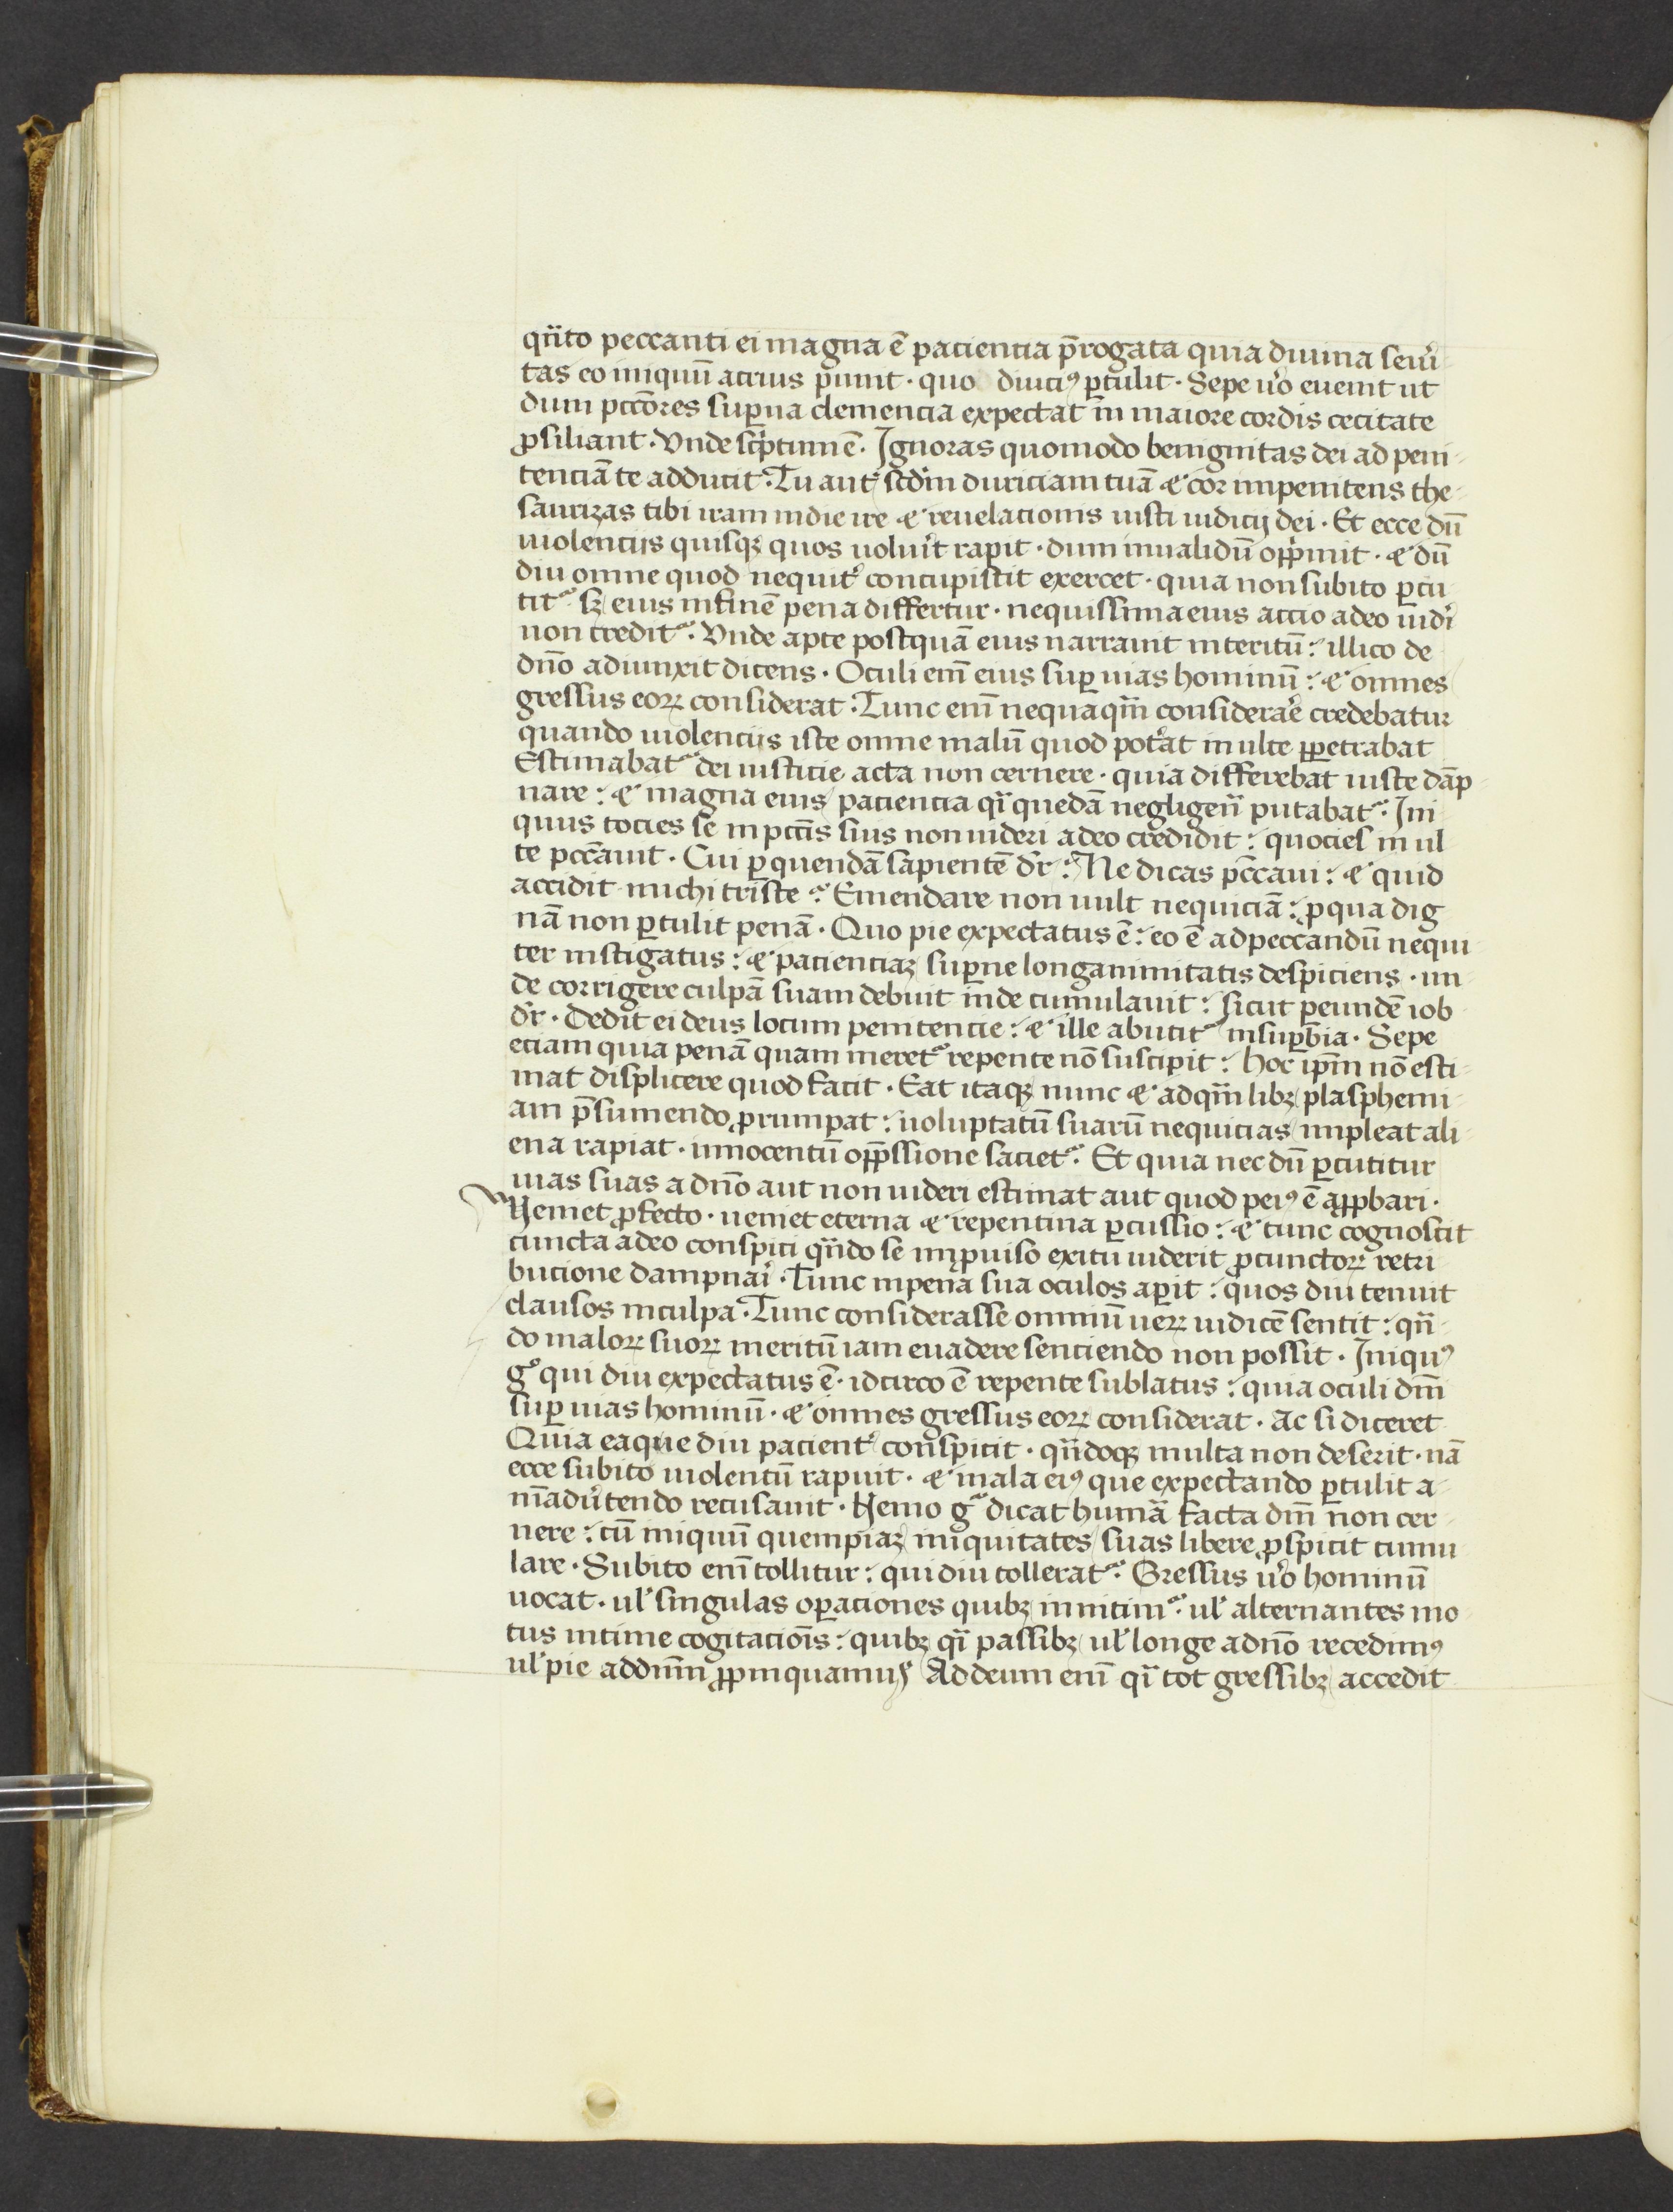 qn̄to peccanti ei magna ē paciencia p̄rogata quia diuina seu̓i
tas eo iniquū acrius punit · quo diuciꝰ ꝑtulit · Sepe u̓o euenit ut
dum pcc̄ores suꝑna clemencia expectat in maiore cordis cecitate
ꝓsiliant · Vnde scͥptum ē · Ignoras quomodo benignitas dei ad peni-
tenciā te adducit · Tu aut̓ scd̓m duriciam tuā & cor impenitens the-
saurizas tibi iram in die ire & reuelacionis iusti iudicij dei · Et ecce dū
uiolencijs quisqꝫ quos uolu̓it rapit · dum inualidū opp̓mit · & dū
diu omne quod nequit̓ concupiscit exercet · quia non subito ꝑcu
tit᷑ · sꝫ eius in finē pena differtur · nequissima eius accio a deo uid̓i
non credit᷑ · Vnde apte postquā eius narrauit interitū : illico de
dn̄o adiunxit dicens · Oculi eni᷒ eius suꝑ uias hominū : & omnes
gressus eoꝝ considerat · Tunc eni᷒ nequaqͣm considerar̄e credebatur
quando uiolencijs iste omne malū quod pot̓at inulte ꝑpetrabat
Estimabat᷑ dei iusticie acta non cernere · quia differebat iuste dāp-
nare : & magna eius paciencia qͣi quedā negligen̄ putabat᷑ · Ini
quus tocies se in pcc̄is suis non uideri a deo credidit : quocies inul
te pcc̄auit · Cui ꝑ quendā sapientē dr̄ : Ne dicas pcc̄aui : & quid
accidit michi triste · Emendare non uult nequiciā : ꝓ qua dig
nā non ꝑtulit penā · Quo pie expectatus ē : eo ē ad peccandū nequi-
ter instigatus : & pacienciaꝫ suꝑne longanimitatis despiciens · un
de corrigere culpā suam debuit inde cumulauit : sicut ꝑ eundē iob
dr̄ · Dedit ei deus locum penitencie : & ille abutit᷑ in suꝑbia · Sepe
eciam quia penā quam meret᷑ repente nō suscipit : hoc ip̄m nō esti-
mat displicere quod facit · Eat itaqꝫ nunc & ad qͣm libꝫ plasphemi-
am p̄sumendo ꝓrumpat : uoluptatū suarū nequicias impleat ali-
ena rapiat · innocentū opp̄ssione saciet᷑ · Et quia nec dū ꝑcutitur
uias suas a dn̄o aut non uideri estimat aut quod peiꝰ ē apꝓbari ·
Veniet ꝓfecto · ueniet eterna & repentina ꝑcussio : & tunc cognoscit
cuncta a deo conspici qn̄do se imꝓuiso exitu uiderit ꝓ cunctoꝝ retri
bucione dampnar̓i · Tunc in pena sua oculos aꝑit : quos diu tenuit
clausos in culpa · Tunc considerasse omniū ueꝝ iudicē sentit : qn̄-
do maloꝝ suoꝝ meritū iam euadere senciendo non possit · Iniquꝰ
gͦ qui diu expectatus ē · idcirco ē repente sublatus : quia oculi dn̄i
suꝑ uias hominū · & omnes gressus eoꝝ considerat · Ac si diceret
Quia ea que diu pacient̓ conspicit · qn̄doqꝫ inulta non deserit · nā
ecce subito uiolentū rapuit · & mala eiꝰ que expectando ꝑtulit a-
nīaduͬtendo recusauit · Nemo gͦ dicat humā facta dn̄m non cer-
nere : cū iniquū quempiaꝫ iniquitates suas libere ꝓspicit cumu
lare · Subito eni᷒ tollitur : qui diu tollerat᷑ · Gressus u̓o hominū
uocat · ul̓ singulas oꝑaciones quibꝫ innitim᷑ · ul̓ alternantes mo
tus intime cogitacion̄is : quibꝫ qͣi passibꝫ ul̓ longe a dn̄o recedimꝰ
ul̓ pie ad dn̄m ꝓpinquamus Ad deum eni᷒ qͣi tot gressibꝫ accedit